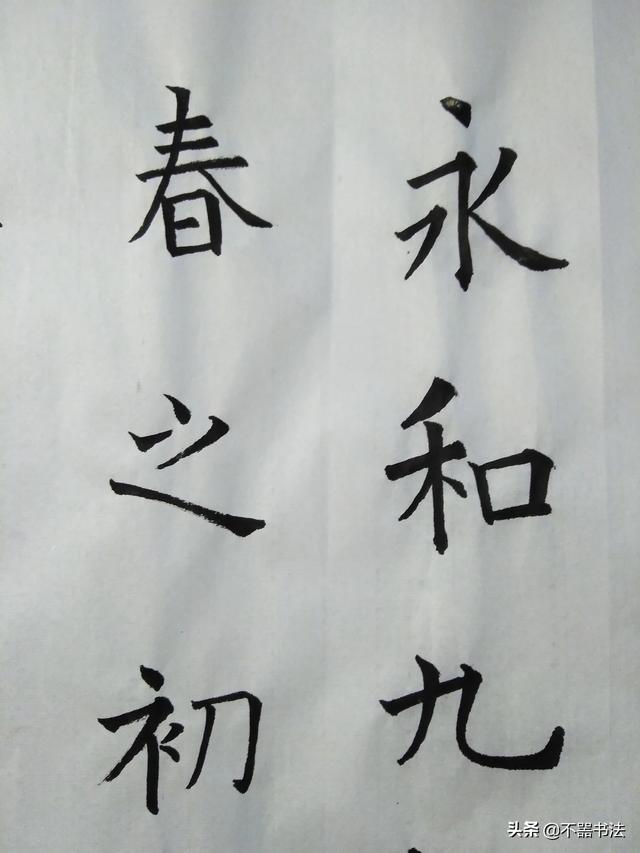 永和九
春之初
头条 @不器书法